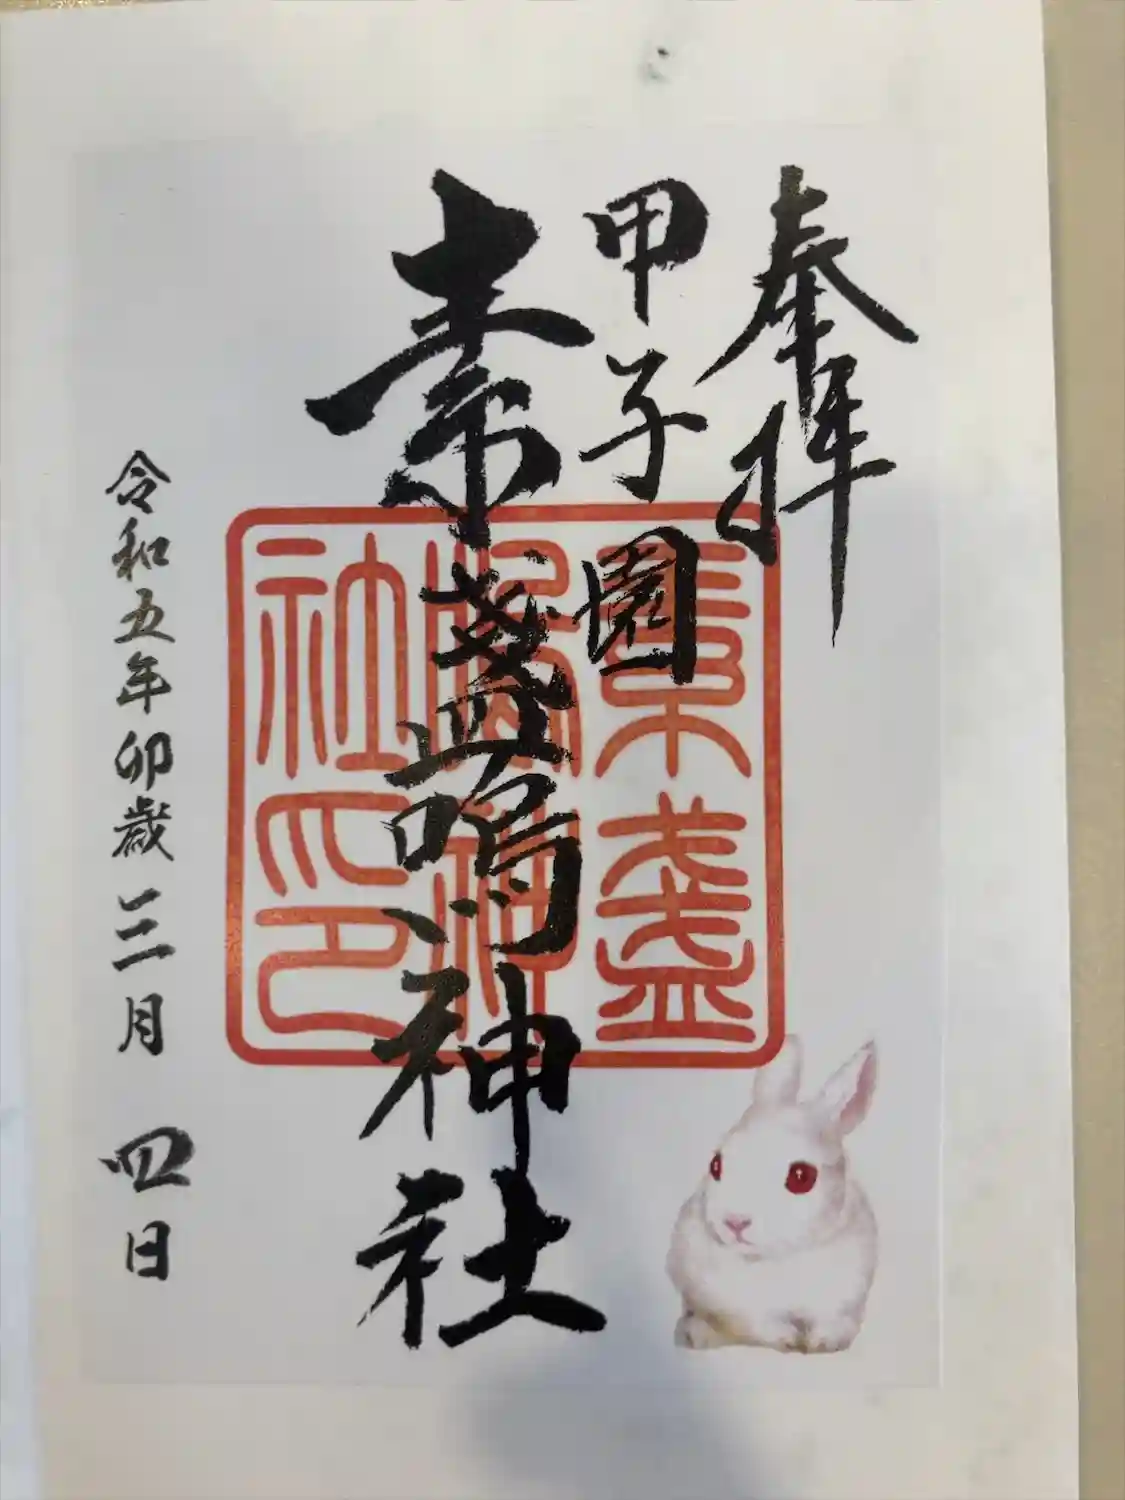 奉拝
甲子園
素盞嗚神社
素盞
嗚神
社印
令和五年卯歳三月 四日